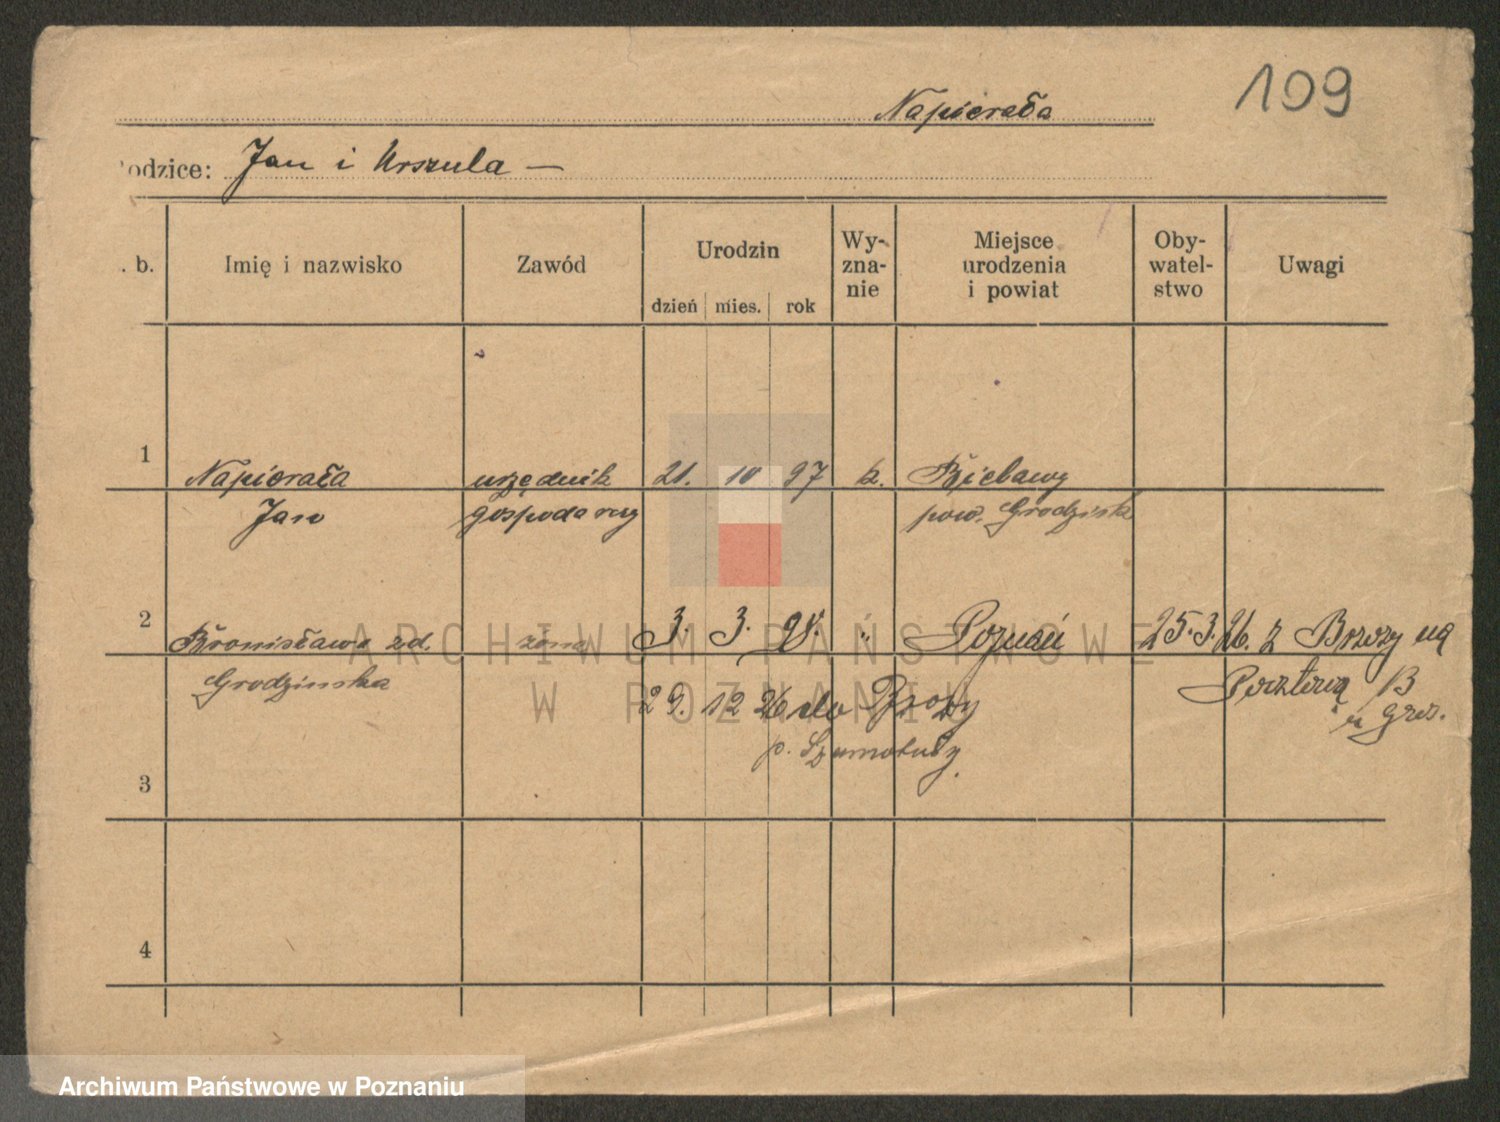 109
Napierała
odzice: Jan i Urszula —
. b. Imię i nazwisko Zawód Urodzin dzień mies. rok Wy-zna-nie Miejsce urodzenia i powiat Oby-watel-stwo Uwagi
1 Napierała urzędnik 21. 10 97 k.
Jan gospodarczy pow. Grodzisk
2 Bronisława zd. żona 3. 3. 98. " Poznań 25.3.26. z Brzozy na
Grodzińska Pocztową
29. 12 26 do
p. Szamotuły.
3
4
ARCHIWUM PAŃSTWOWE
W POZNANIU
Archiwum Państwowe w Poznaniu